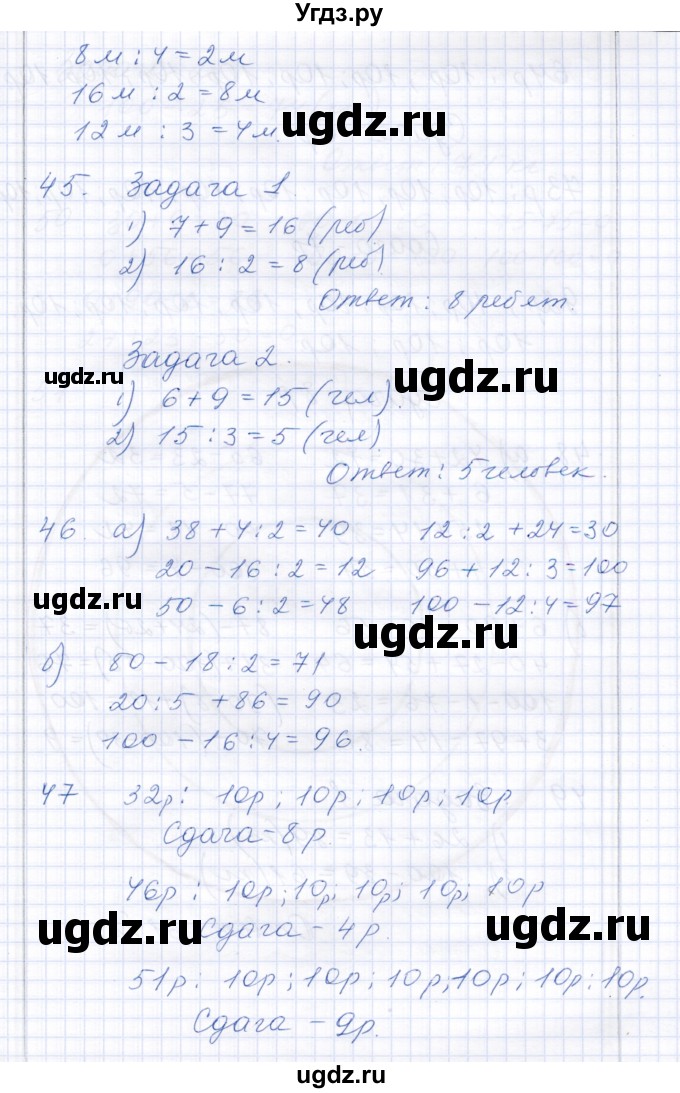 Угдз.ру
8 м : 4 = 2 м
16 м : 2 = 8 м
12 м : 3 = 4 м.
ugdz.ru
45. Задача 1.
1) 7 + 9 = 16 (реб)
2) 16 : 2 = 8 (реб)
Ответ : 8 ребят.
Задача 2.
ugdz.ru ugdz.ru
1) 6 + 9 = 15 (чел).
2) 15 : 3 = 5 (чел)
Ответ : 5 человек.
46. а) 38 + 4 : 2 = 40 12 : 2 + 24 = 30
20 - 16 : 2 = 12 96 + 12 : 3 = 100
50 - 6 : 2 = 48 100 - 12 : 4 = 97
ugdz.ru ugdz.ru
б) 80 - 18 : 2 = 71
20 : 5 + 86 = 90
100 - 16 : 4 = 96.
47 32р : 10р ; 10р ; 10р ; 10р
Сдача - 8 р.
46р : 10р ; 10р ; 10р ; 10р ; 10р
Сдача - 4 р.
ugdz.ru ugdz.ru
51р : 10р ; 10р ; 10р ; 10р ; 10р ; 10р.
Сдача - 9р.
ugdz.ru